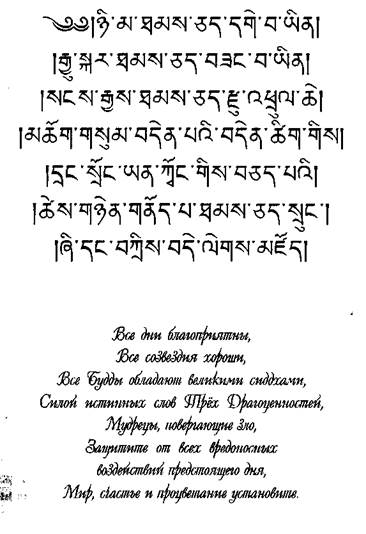 ༄༅།ཉི་མ་ཐམས་ཅད་དགེ་བ་ཡིན།
།རྒྱུ་སྐར་ཐམས་ཅད་བཟང་བ་ཡིན།
།སངས་རྒྱས་ཐམས་ཅད་རྫུ་འཕྲུལ་ཆེ།
།མཆོག་གསུམ་བདེན་པའི་བདེན་ཚིག་གིས།
།དྲང་སྲོང་ཡན་ཀློང་གིས་བཅད་པའི།
།ཚེས་གཉེན་གནོད་པ་ཐམས་ཅད་སྲུང་།
།ཞི་དང་བཀྲིས་བདེ་ལེགས་མཛོད།
Все дни благоприятны,
Все созвездия хороши,
Все Будды обладают великими сиддхами,
Силой истинных слов Трёх Драгоценностей,
Мудрецы, повергающие зло,
Защитите от всех вредоносных
воздействий предстоящего дня,
Мир, счастье и процветание установите.